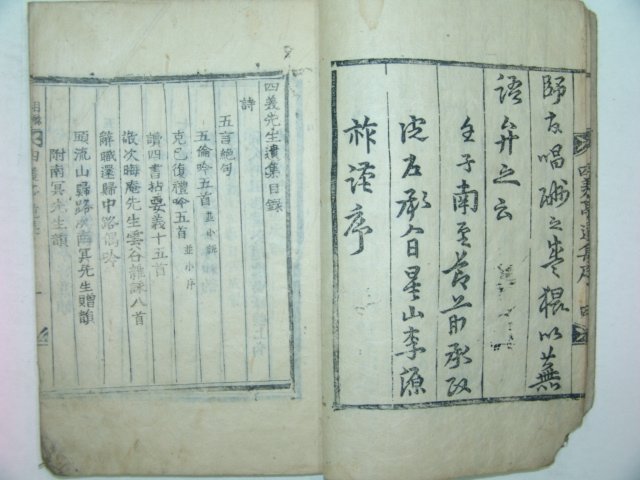 師友唱酬之
以蕪
語弁之云
壬子南至
前承政
院右承旨星山李源
祚謹序
四義先生遺集目錄
詩
五言絶句
五倫吟五首 並小叙
克己復禮吟五首 並小序
讀四書拈要義十五首
敬次晦庵先生雲谷雜詠八首
解職還歸中路偶吟
頭流山歸路次南冥先生贈韻
附南冥先生韻